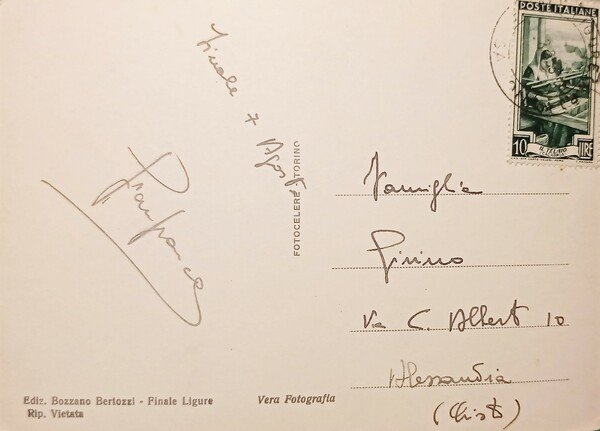 Finale 7 Agosto
Gianfranco
FOTOCELERE TORINO
POSTE ITALIANE
IL TELAIO
10 LIRE
Famiglia
Via C. Albert 10
Alessandria
Ediz. Bozzano Bertozzi - Finale Ligure
Rip. Vietata
Vera Fotografia